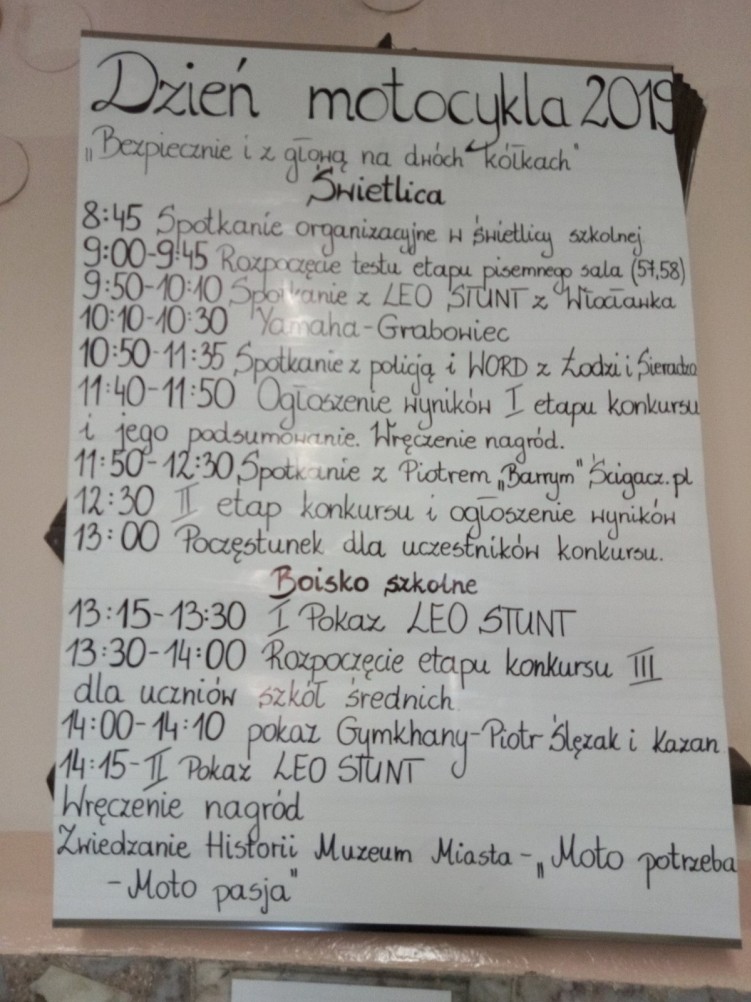 Dzień motocykla 2019
„Bezpiecznie i z głową na dwóch kółkach"
Świetlica
8:45 Spotkanie organizacyjne w świetlicy szkolnej
9:00-9:45 Rozpoczęcie testu etapu pisemnego sala (57,58)
9:50-10:10 Spotkanie z LEO STUNT z Włocławka
10:10-10:30 Yamaha-Grabowiec
10:50-11:35 Spotkanie z policją i WORD z Łodzi i Sieradza
11:40-11:50 Ogłoszenie wyników I etapu konkursu
i jego podsumowanie. Wręczenie nagród.
11:50-12:30 Spotkanie z Piotrem „Barrym" Ścigacz.pl
12:30 II etap konkursu i ogłoszenie wyników
13:00 Poczęstunek dla uczestników konkursu.
Boisko szkolne
13:15-13:30 I Pokaz LEO STUNT
13:30-14:00 Rozpoczęcie etapu konkursu III
dla uczniów szkół średnich
14:00-14:10 pokaz Gymkhany-Piotr Ślęzak i Kazan
14:15-II Pokaz LEO STUNT
Wręczenie nagród
Zwiedzanie Historii Muzeum Miasta-„Moto potrzeba
-Moto pasja"